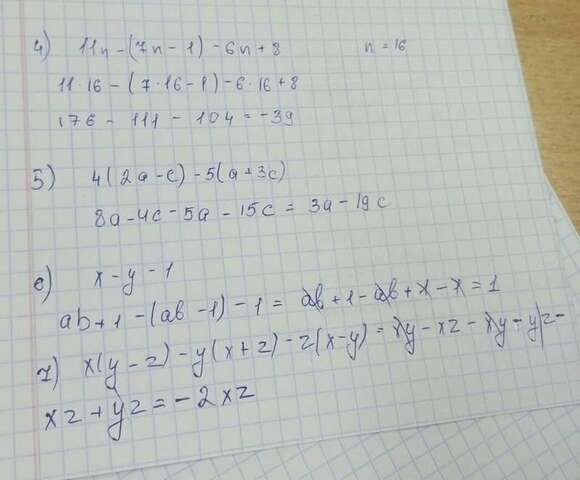 4) 11n - (7n - 1) - 6n + 8 n = 16
11·16 - (7·16 - 1) - 6·16 + 8
176 - 111 - 104 = -39
5) 4(2a - c) - 5(a + 3c)
8a - 4c - 5a - 15c = 3a - 19c
6) x - y - 1
ab + 1 - (ab - 1) - 1 = ab + 1 - ab + x - x = 1
7) x(y - z) - y(x + z) - z(x - y) = xy - xz - xy - yz -
xz + yz = -2xz